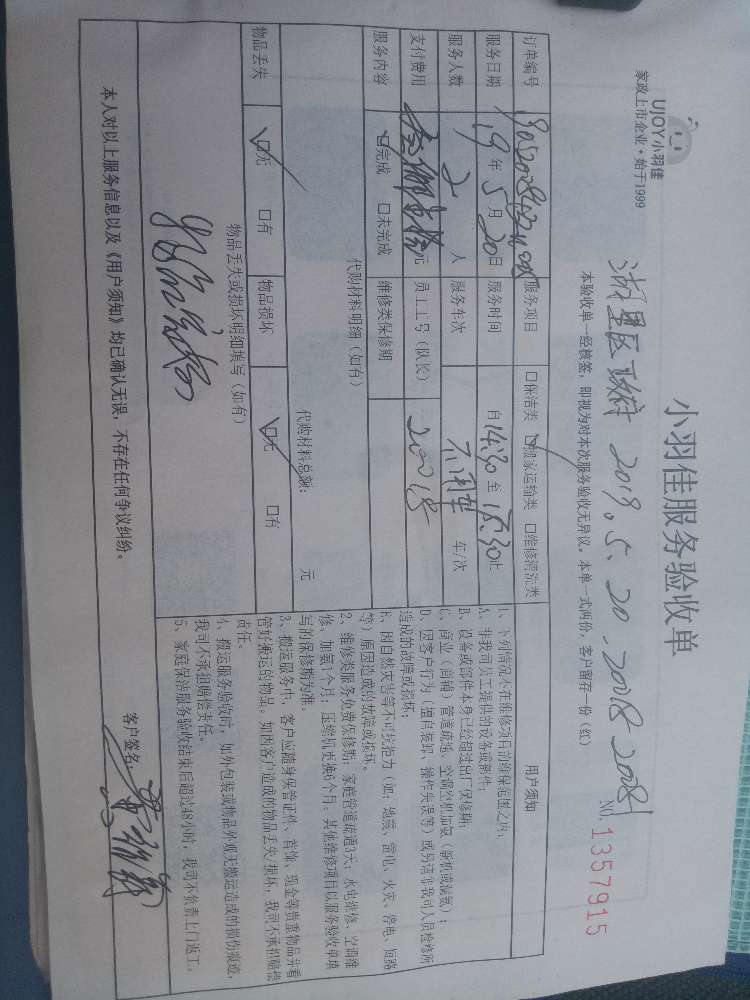 UJOY小羽佳
家政上市企业·始于1999
小羽佳服务验收单
湖里区政府 2019.5.20. 20018 2008
NO. 1357915
本验收单一经核签，即视为对本次服务验收无异议。本单一式两份，客户留存一份（红）
订单编号 服务项目 口保洁类 口搬家运输类 口维修清洗类
服务日期 19年5月20日 服务时间 自14:30至15:30止
服务人数 2人 服务车次 车/次
支付费用 元 员工工号（队长） 20018
服务内容 口完成 口未完成 维修类保修期
代购材料明细（如有）
代购材料总额： 元
物品丢失 口无 口有 物品损坏 口无 口有
物品丢失或损坏明细填写（如有）
用户须知
1、下列情况不在维修项目的维保范围之内：
A、非我司员工提供的设备或部件；
B、设备或部件本身已经超过出厂保修期；
C、商业（商铺）管道疏通、空调冷柜加氨（新机或漏氨）；
D、因客户行为（擅自装卸、操作失误等）或另请非我司人员检修所
造成的故障或损坏；
E、因自然灾害等不可抗拒力（如：地震、雷电、火灾、停电、短路
等）原因造成的故障或损坏。
2、维修类服务免费保修期：家庭管道疏通3天；水电维修、空调维
修、加氨1个月；压缩机更换6个月。其他维修项目以服务验收单填
写的保修期为准。
3、搬运服务中，客户应随身保管证件、首饰、现金等贵重物品并看
管好搬运的物品。如因客户造成的物品丢失/损坏，我司不承担赔偿
责任。
4、搬运服务验收时，如外包装或物品外观无搬运造成的损伤痕迹，
我司不承担赔偿责任。
5、家庭保洁服务验收结束后超过48小时，我司不负责上门返工。
本人对以上服务信息以及《用户须知》均已确认无误，不存在任何争议纠纷。
客户签名：